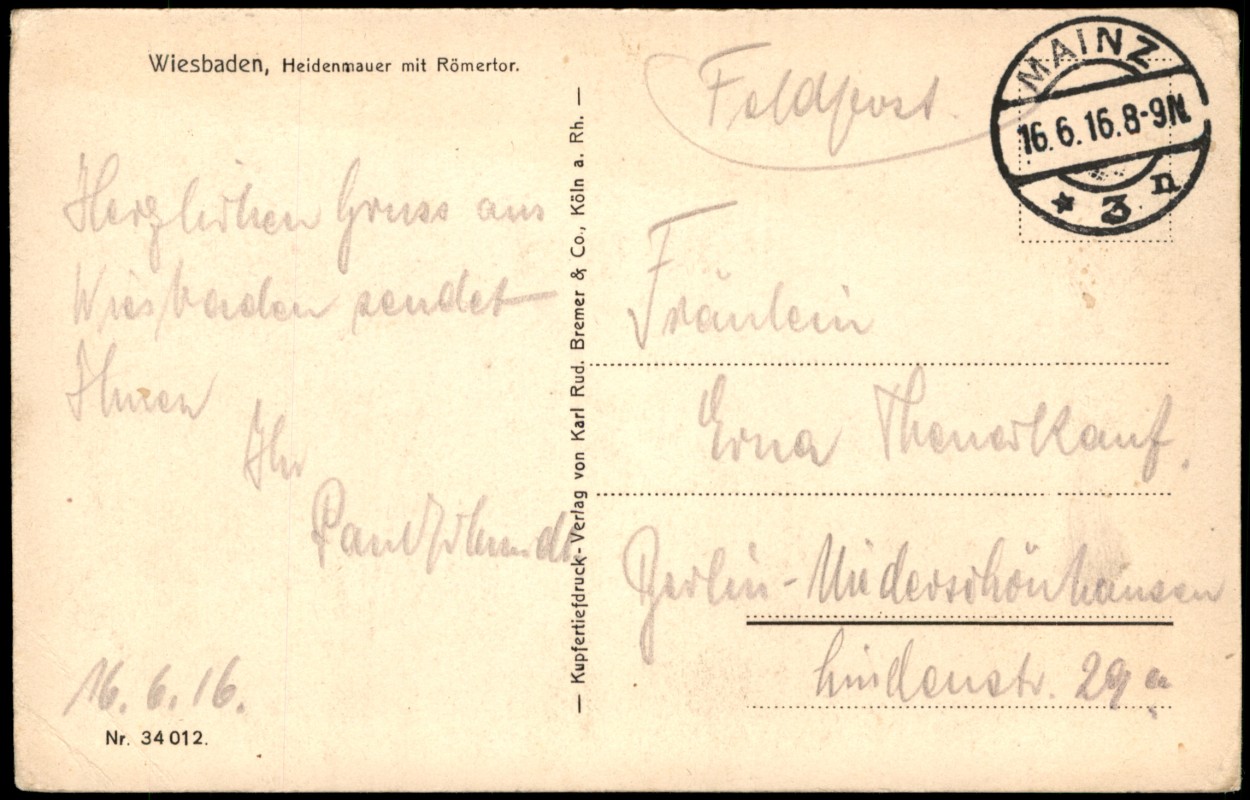 Wiesbaden, Heidenmauer mit Römertor.
Herzlichen Gruss aus
Wiesbaden sendet
Ihnen
Ihr
Paul Schmidt.
16.6.16.
Nr. 34012.
— Kupfertiefdruck-Verlag von Karl Rud. Bremer & Co., Köln a. Rh. —
Feldpost.
MAINZ
16.6.16.8-9N.
* 3 n
Fräulein
Erna
Berlin-Niederschönhausen
Lindenstr. 29a